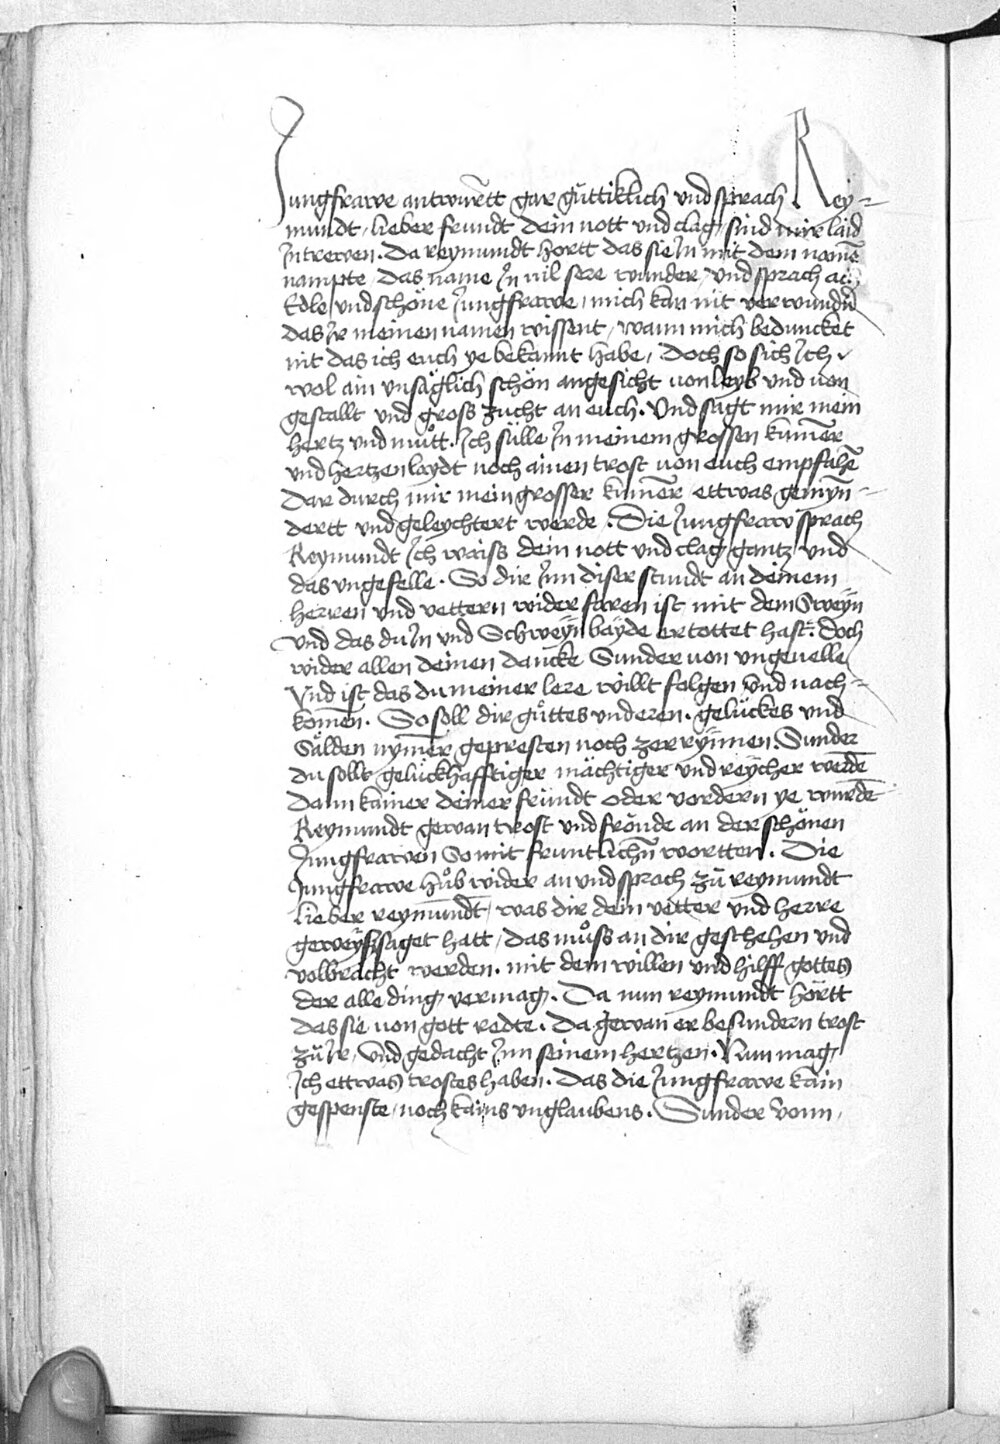 Jungfrawe antwurtt gar güttiklich und sprach Rey=
mundt, lieber frundt dein nott und clag, sind mir laid
Jn trewen. Da reymundt hortt das sie Jn mit dem namē
nampte, das name Jn vil sere wunder, und sprach
Edle und schöne Jungfrawe, mich kan nit verwundern
das Jr meinen namen wissent, wann mich beduncket
nit das ich euch ye bekannt habe, Doch so sich Jch
wol ain unsäglich schön angesicht von leyb und von
gestallt und gross zucht an euch. Und sagt mir mein
hertz und můtt. Jch sülle Jn meinem grossen kumēr
und hertzenlaydt noch ainen trost von euch empfahē
Dar durch mir mein grosser kumēr ettwas gemyn=
dertt und geleychtert werde. Die Jungfraw sprach
Reymundt Jch waiss dein nott und clag gantz und
das ungefelle. So dir Jnn diser stundt an deinem
herren und vettern widerfaren ist mit dem Sweyn
Und das du Jn und Schweyn bayde ertottet hast. doch
wider allen deinen dancke Sunder von ungevelle
Und ist das du meiner lere willt folgen und nach=
komen. So soll dir gůttes und eren. gelückes und
Sälden nymēr gepresten noch zerrynnen. Sunder
du sollt gelückhafftiger mächtiger und reycher werdē
Dann kainer deiner fründt oder vordern ye wurdē
Reymundt gewan trost und fröude an der schönen
Jungfrawen So mit fruntlichn wortten. Die
Jungfrawe hůb wider an und sprach zů reymundt
lieber reymundt, was dir dein vetter und herre
geweyssaget hatt, das můss an dir geschehen und
volbracht werden. mit dem willen und hilff gottes
der alle ding vermag. Da nun reymundt hörtt
das sie von gott redte. Da gewan er besundern trost
zů Jr, und gedacht Jnn seinem hertzen. Nun mag
Jch ettwas trostes haben. Das die Jungfrawe kain
gespenste, noch kains unglaubens. Sunder vonn,